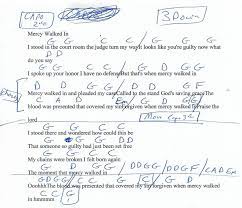 CAPO 2nd
3 Down
Mercy Walked In
G G C G
I stood in the court room the judge turn my way It looks like you're guilty now what
do you say
G G C G
I spoke up your honor I have no defense But that's when mercy walked in
D D G G
Mercy walked in and pleaded my case Called to the stand God's saving grace The
C A D G
blood was presented that covered my sin Forgiven when mercy walked in Praise the
lord
G G C C
I stood there and wondered how could this be
G G D
That someone so guilty had just been set free
G G C C
My chains were broken I felt born again
G D G
The moment that mercy walked in
DDGG / DDGF / CADG
Ooohhh The blood was presented that covered my sin Forgiven when mercy walked
in hmmmm